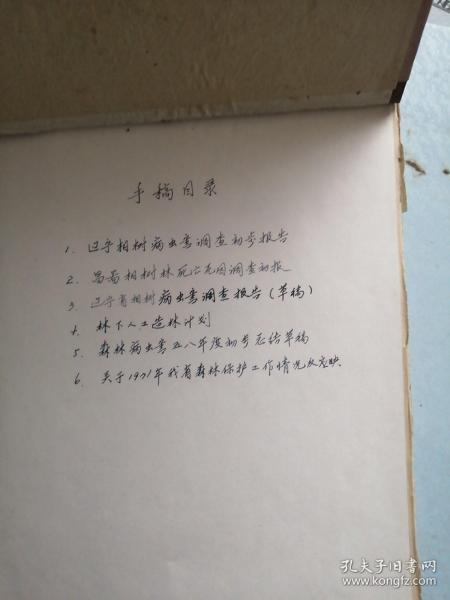 手稿目录
1. 辽宁柞树病虫害调查初步报告
2. 昌图柞树林死亡原因调查初报
3. 辽宁省柞树病虫害调查报告(草稿)
4. 林下人工造林计划
5. 森林病虫害五八年度初步总结草稿
6. 关于1971年我省森林保护工作情况反应映.
孔夫子旧书网
www.kongfz.com